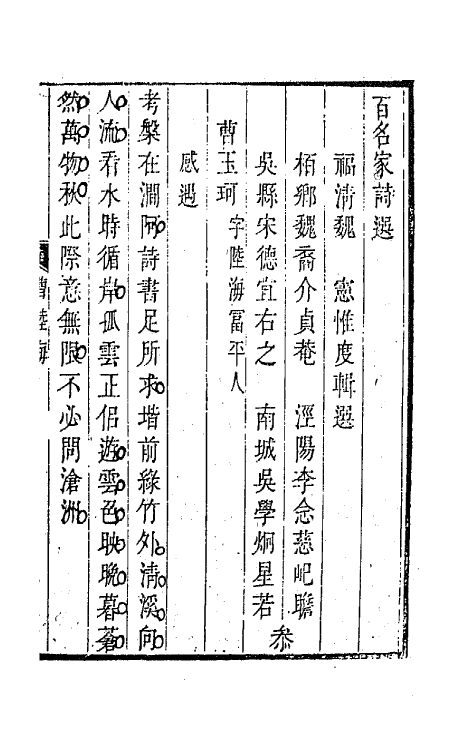 百名家詩選
福清魏 憲惟度輯選
栢鄉魏裔介貞菴 涇陽李念慈屺瞻
吳縣宋德宜右之 南城吳學炯星若
叅
曹玉珂字陸海富平人
感遇
考槃在澗阿詩書足所求堦前綠竹外清溪向
人流看水時循岸孤雲正侶遊雲色映晚暮蒼
然萬物秋此際意無限不必問滄洲
曹陸海